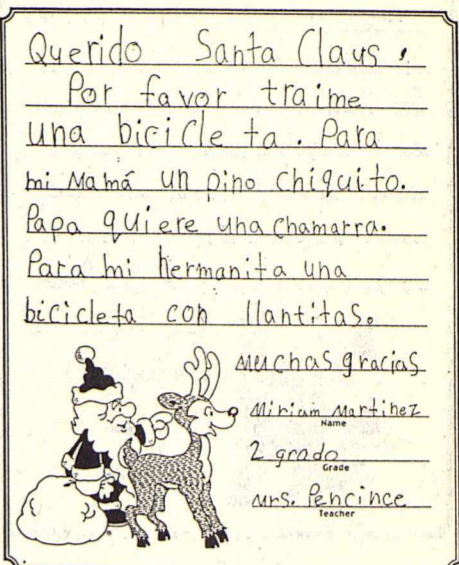 Querido Santa Claus.
Por favor traime
una bicicleta. Para
mi Mamá un pino chiquito.
Papa quiere una chamarra.
Para mi hermanita una
bicicleta con llantitas.
muchas gracias
Miriam Martinez
Name
2 grado
Grade
Mrs. Pencince
Teacher